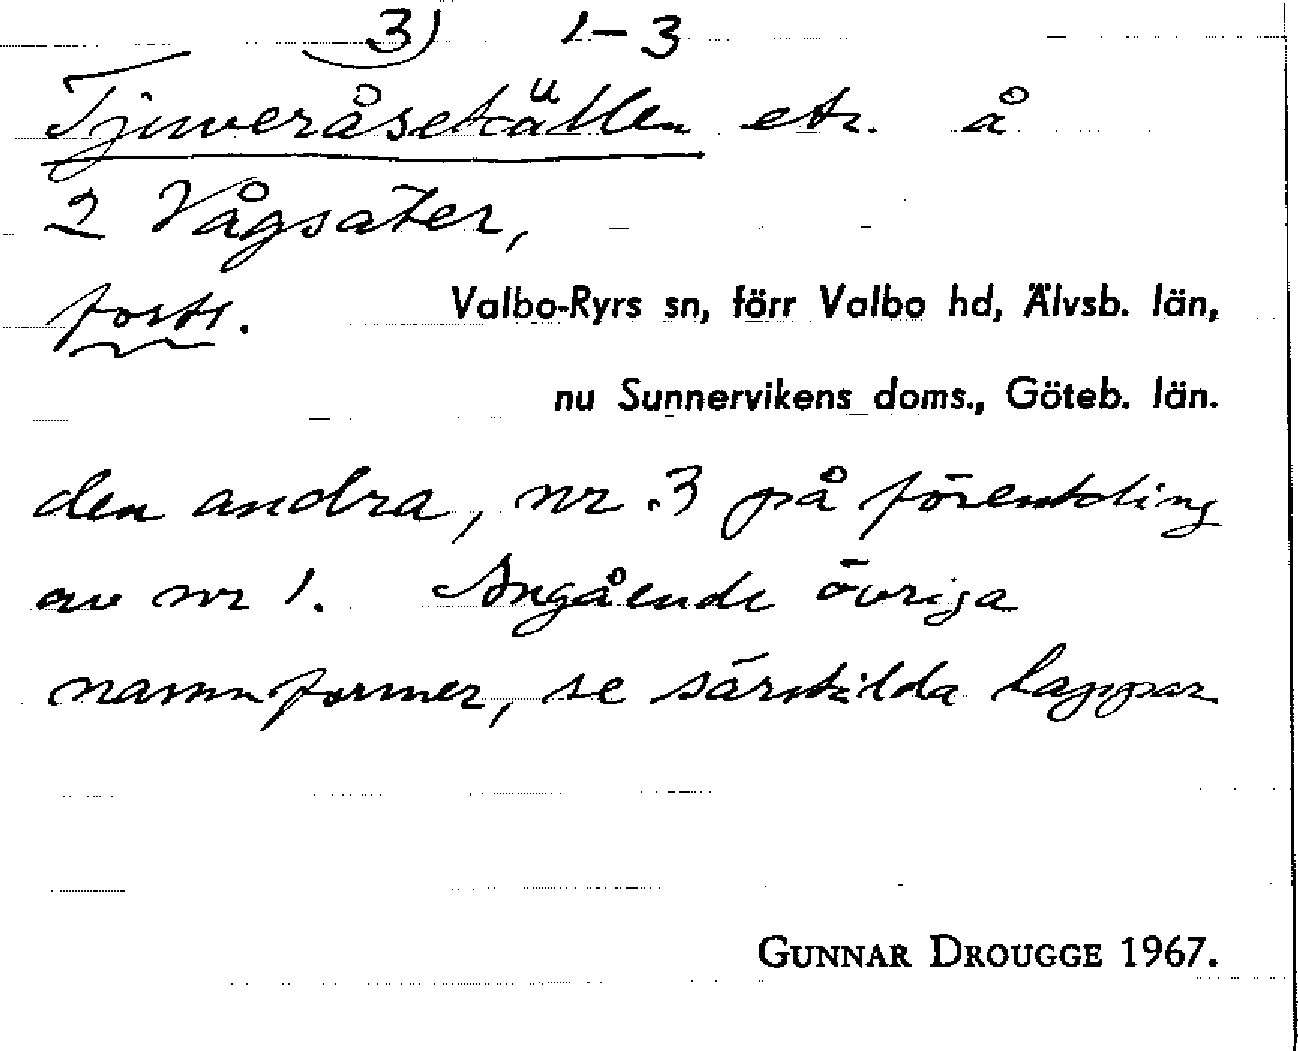 3) 1-3
Tjuveråsekällen etc. å
2 Vågsäter,
forts.
Valbo-Ryrs sn, förr Valbo hd, Älvsb. län,
nu Sunnervikens doms., Göteb. län.
den andra, nr 3 på förenkling
av nr 1. Angående övriga
namnformer, se särskilda lappar
GUNNAR DROUGGE 1967.